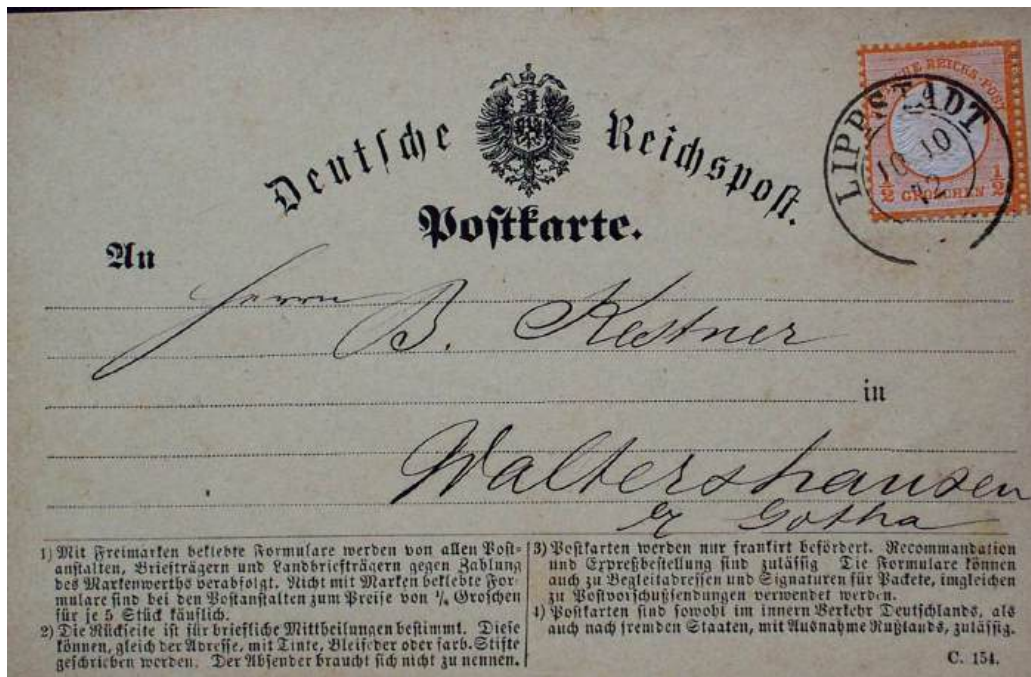 Deutsche Reichspost.
Postkarte.
DEUTSCHE REICHS-POST
½ GROSCHEN ½
LIPPSTADT
10 10
72
An
Herrn
B. Kestner
in
Waltershausen
Gotha
1) Mit Freimarken beklebte Formulare werden von allen Post-
anstalten, Briefträgern und Landbriefträgern gegen Zahlung
des Markenwerths verabfolgt. Nicht mit Marken beklebte For-
mulare sind bei den Postanstalten zum Preise von ¼ Groschen
für je 5 Stück käuflich.
2) Die Rückseite ist für briefliche Mittheilungen bestimmt. Diese
können, gleich der Adresse, mit Tinte, Bleifeder oder farb. Stifte
geschrieben werden. Der Absender braucht sich nicht zu nennen.
3) Postkarten werden nur frankirt befördert. Recommandation
und Expreßbestellung sind zulässig Die Formulare können
auch zu Begleitadressen und Signaturen für Packete, imgleichen
zu Postvorschußsendungen verwendet werden.
4) Postkarten sind sowohl im innern Verkehr Deutschlands, als
auch nach fremden Staaten, mit Ausnahme Rußlands, zulässig.
C. 154.